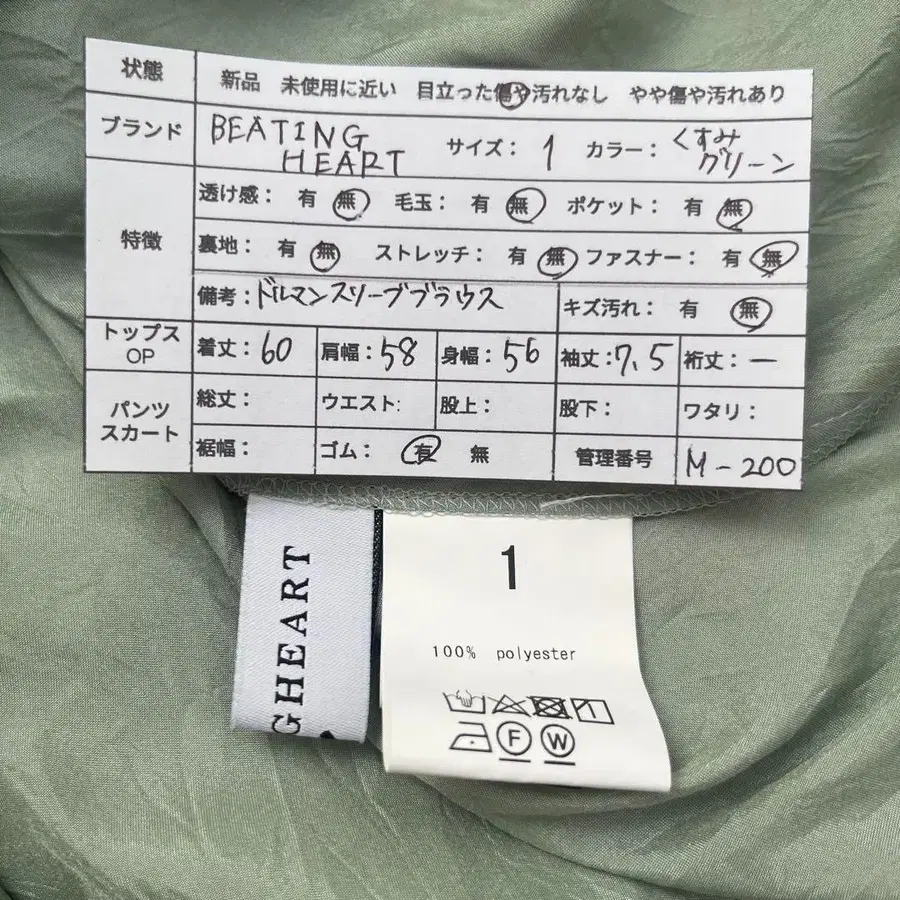 状態 新品 未使用に近い 目立った傷や汚れなし やや傷や汚れあり
ブランド BEATING HEART サイズ： 1 カラー： くすみグリーン
特徴 透け感： 有 無 毛玉： 有 無 ポケット： 有 無
裏地： 有 無 ストレッチ： 有 無 ファスナー： 有 無
備考：ドルマンスリーブブラウス キズ汚れ： 有 無
トップス OP 着丈：60 肩幅：58 身幅：56 袖丈：7.5 裄丈：ー
パンツ スカート 総丈： ウエスト: 股上： 股下： ワタリ：
裾幅： ゴム： 有 無 管理番号 M-200
GHEART
1
100% polyester
F W